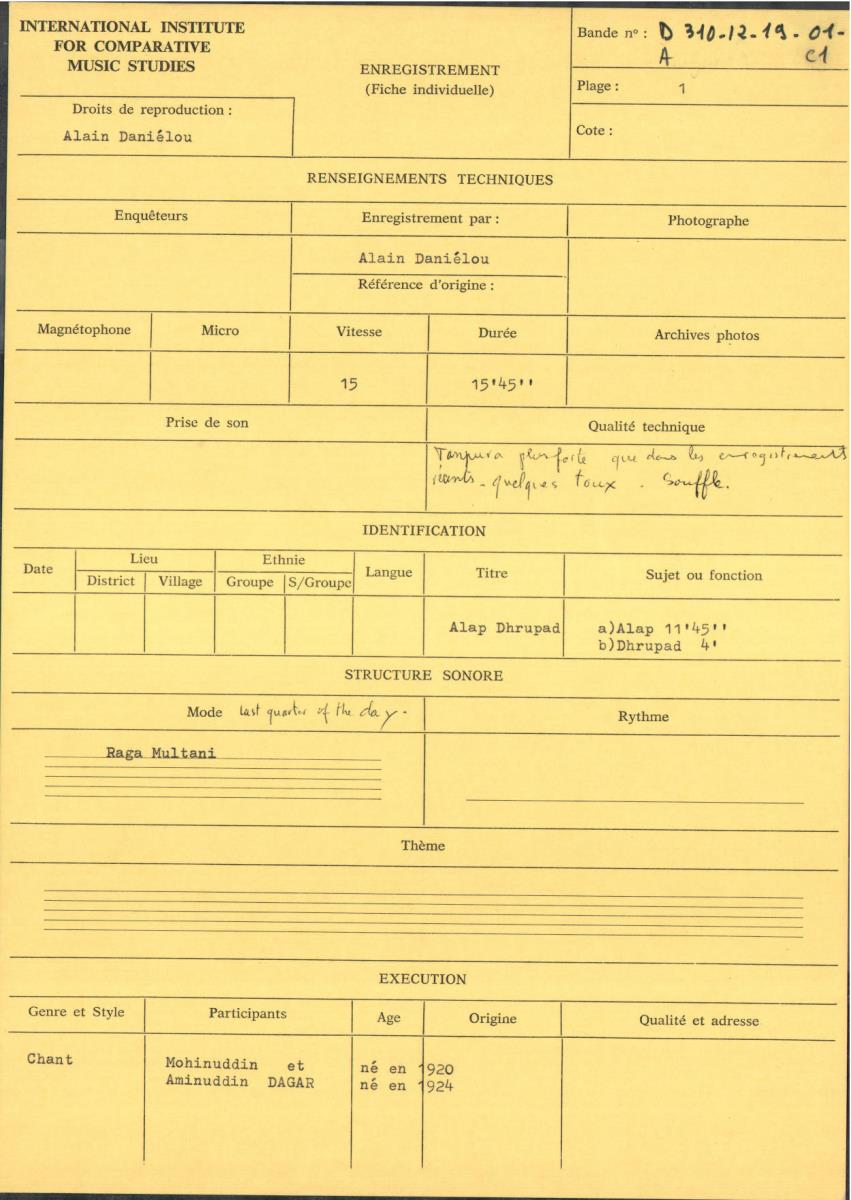 INTERNATIONAL INSTITUTE
FOR COMPARATIVE
MUSIC STUDIES
Droits de reproduction :
Alain Daniélou
ENREGISTREMENT
(Fiche individuelle)
Bande nº : D 310-12-19-01-
A C1
Plage : 1
Cote :
RENSEIGNEMENTS TECHNIQUES
Enquêteurs
Enregistrement par :
Photographe
Alain Daniélou
Référence d'origine :
Magnétophone
Micro
Vitesse
Durée
Archives photos
15
15'45''
Prise de son
Qualité technique
Tanpura plus forte que dans les enregistrements
récents - quelques toux . Souffle.
IDENTIFICATION
Date
Lieu
District
Village
Ethnie
Groupe
S/Groupe
Langue
Titre
Sujet ou fonction
Alap Dhrupad
a)Alap 11'45''
b)Dhrupad 4'
STRUCTURE SONORE
Mode last quarter of the day.
Rythme
Raga Multani
Thème
EXECUTION
Genre et Style
Participants
Age
Origine
Qualité et adresse
Chant
Mohinuddin et
Aminuddin DAGAR
né en 1920
né en 1924